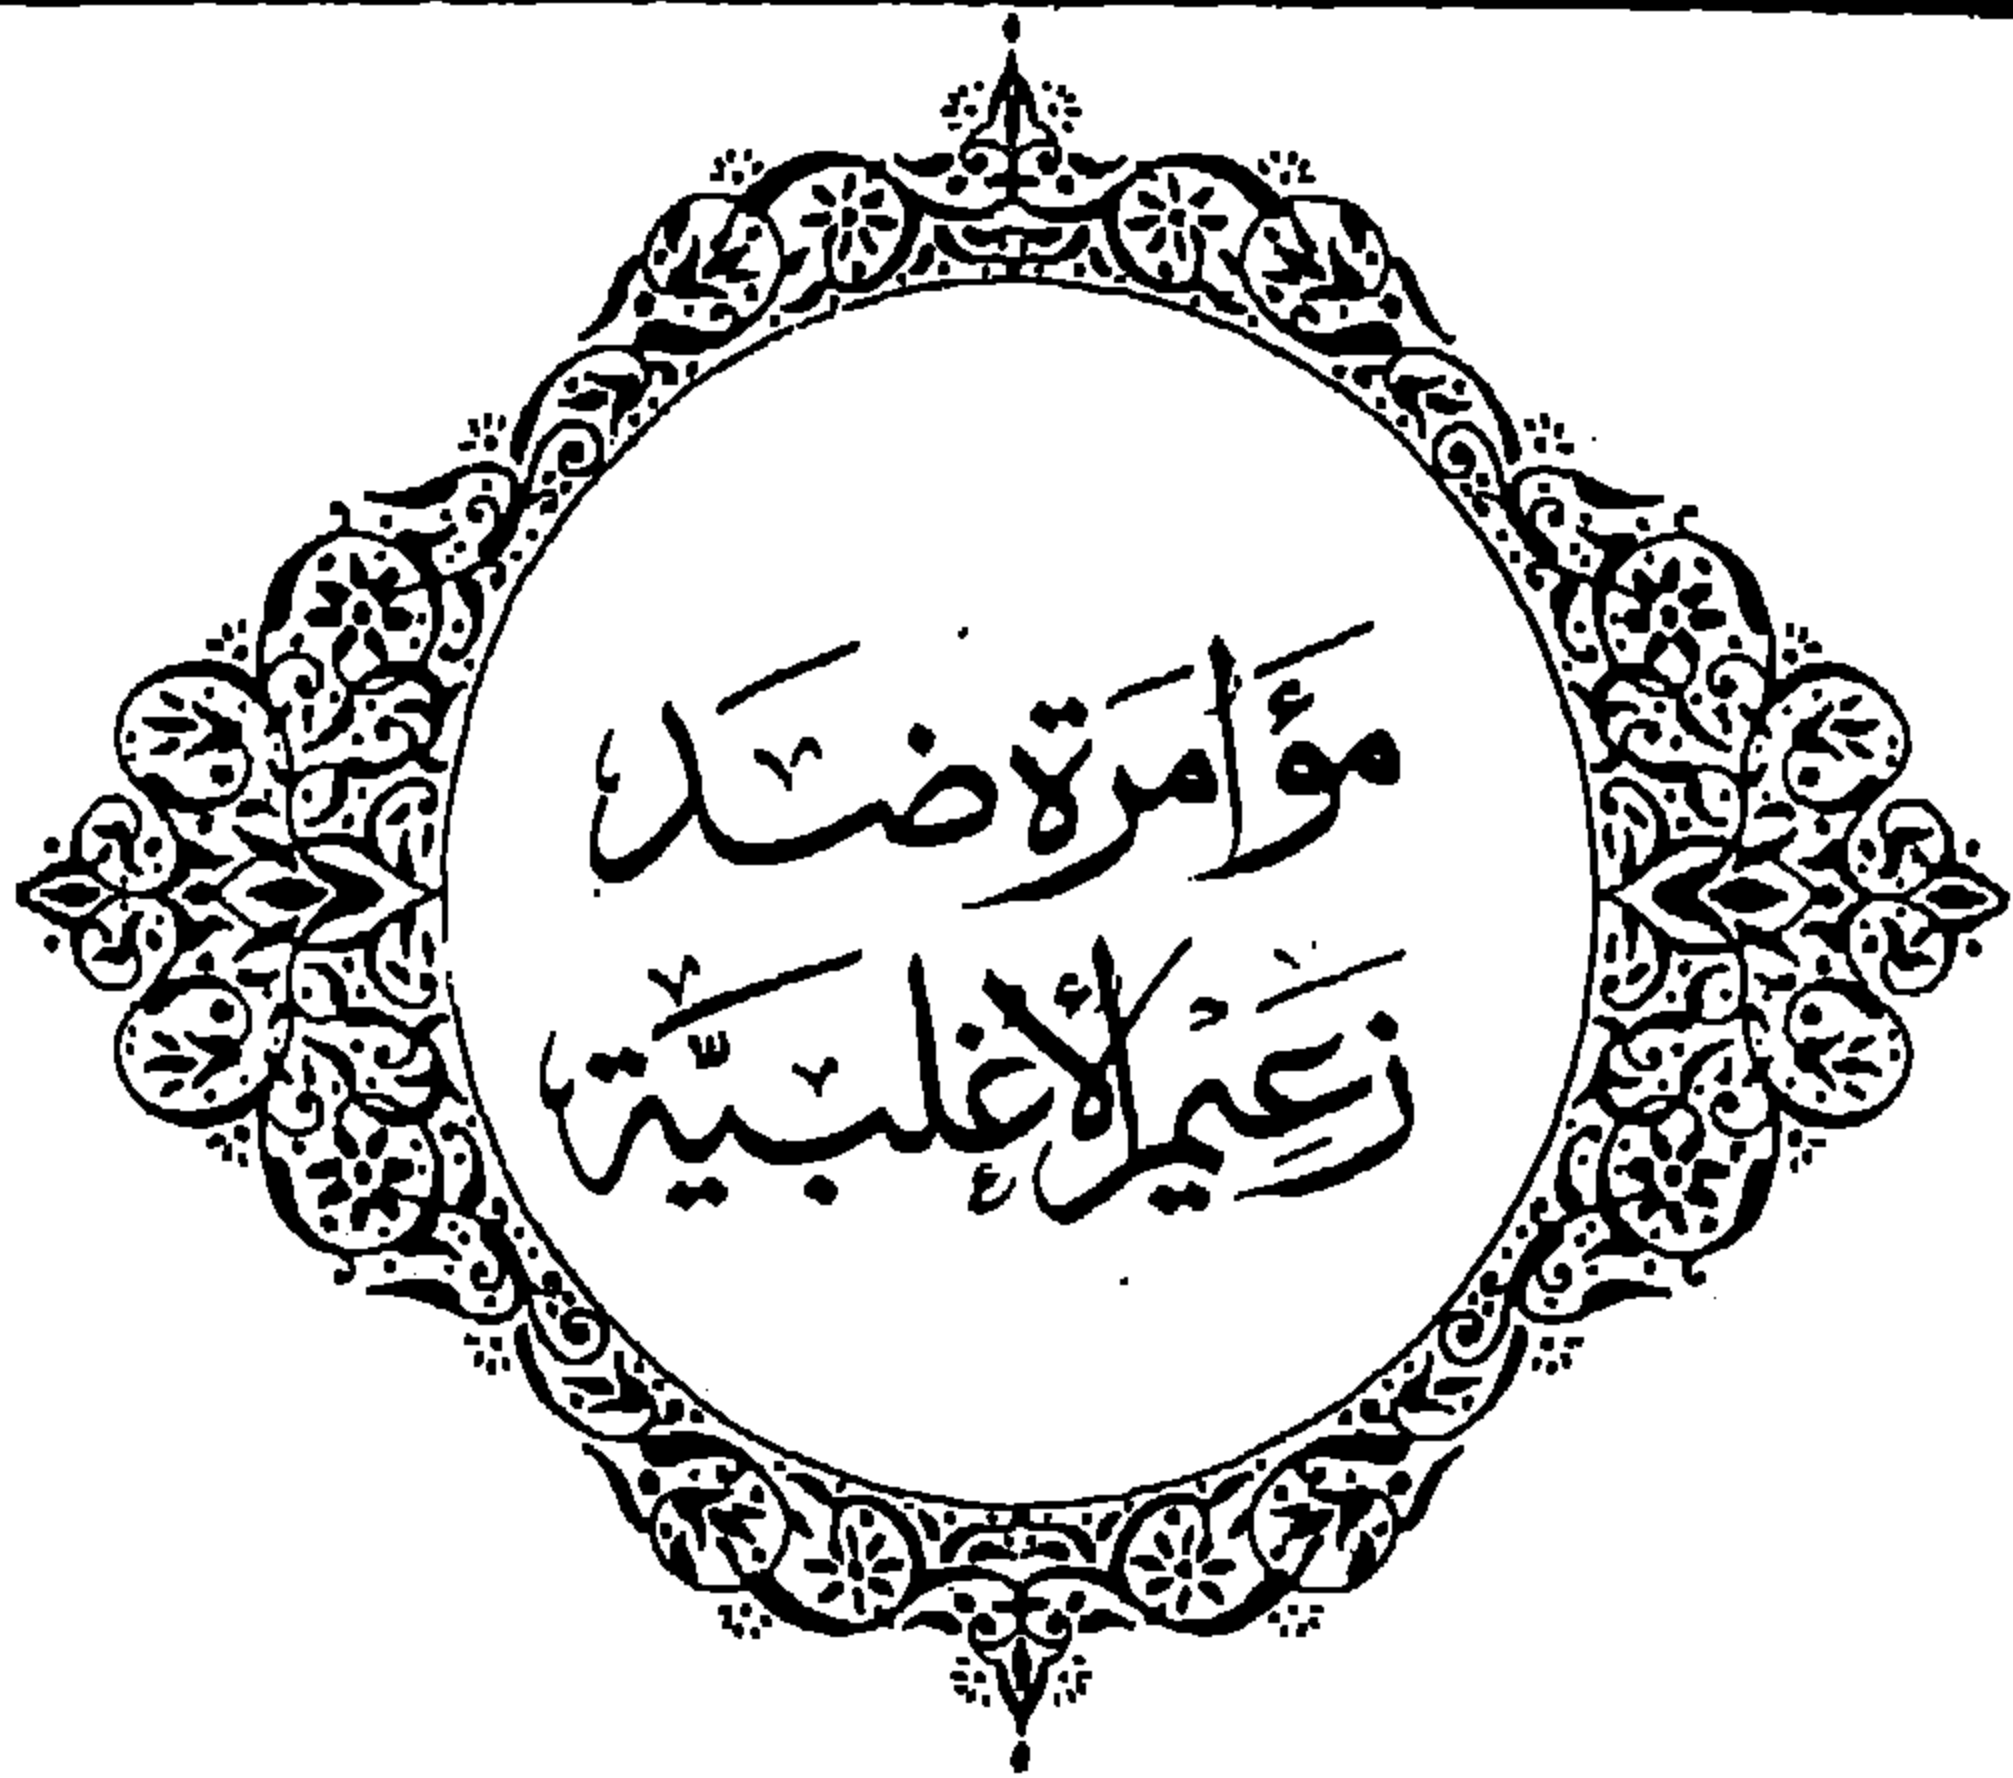 مؤامرة ضد
زعيم الأغلبية